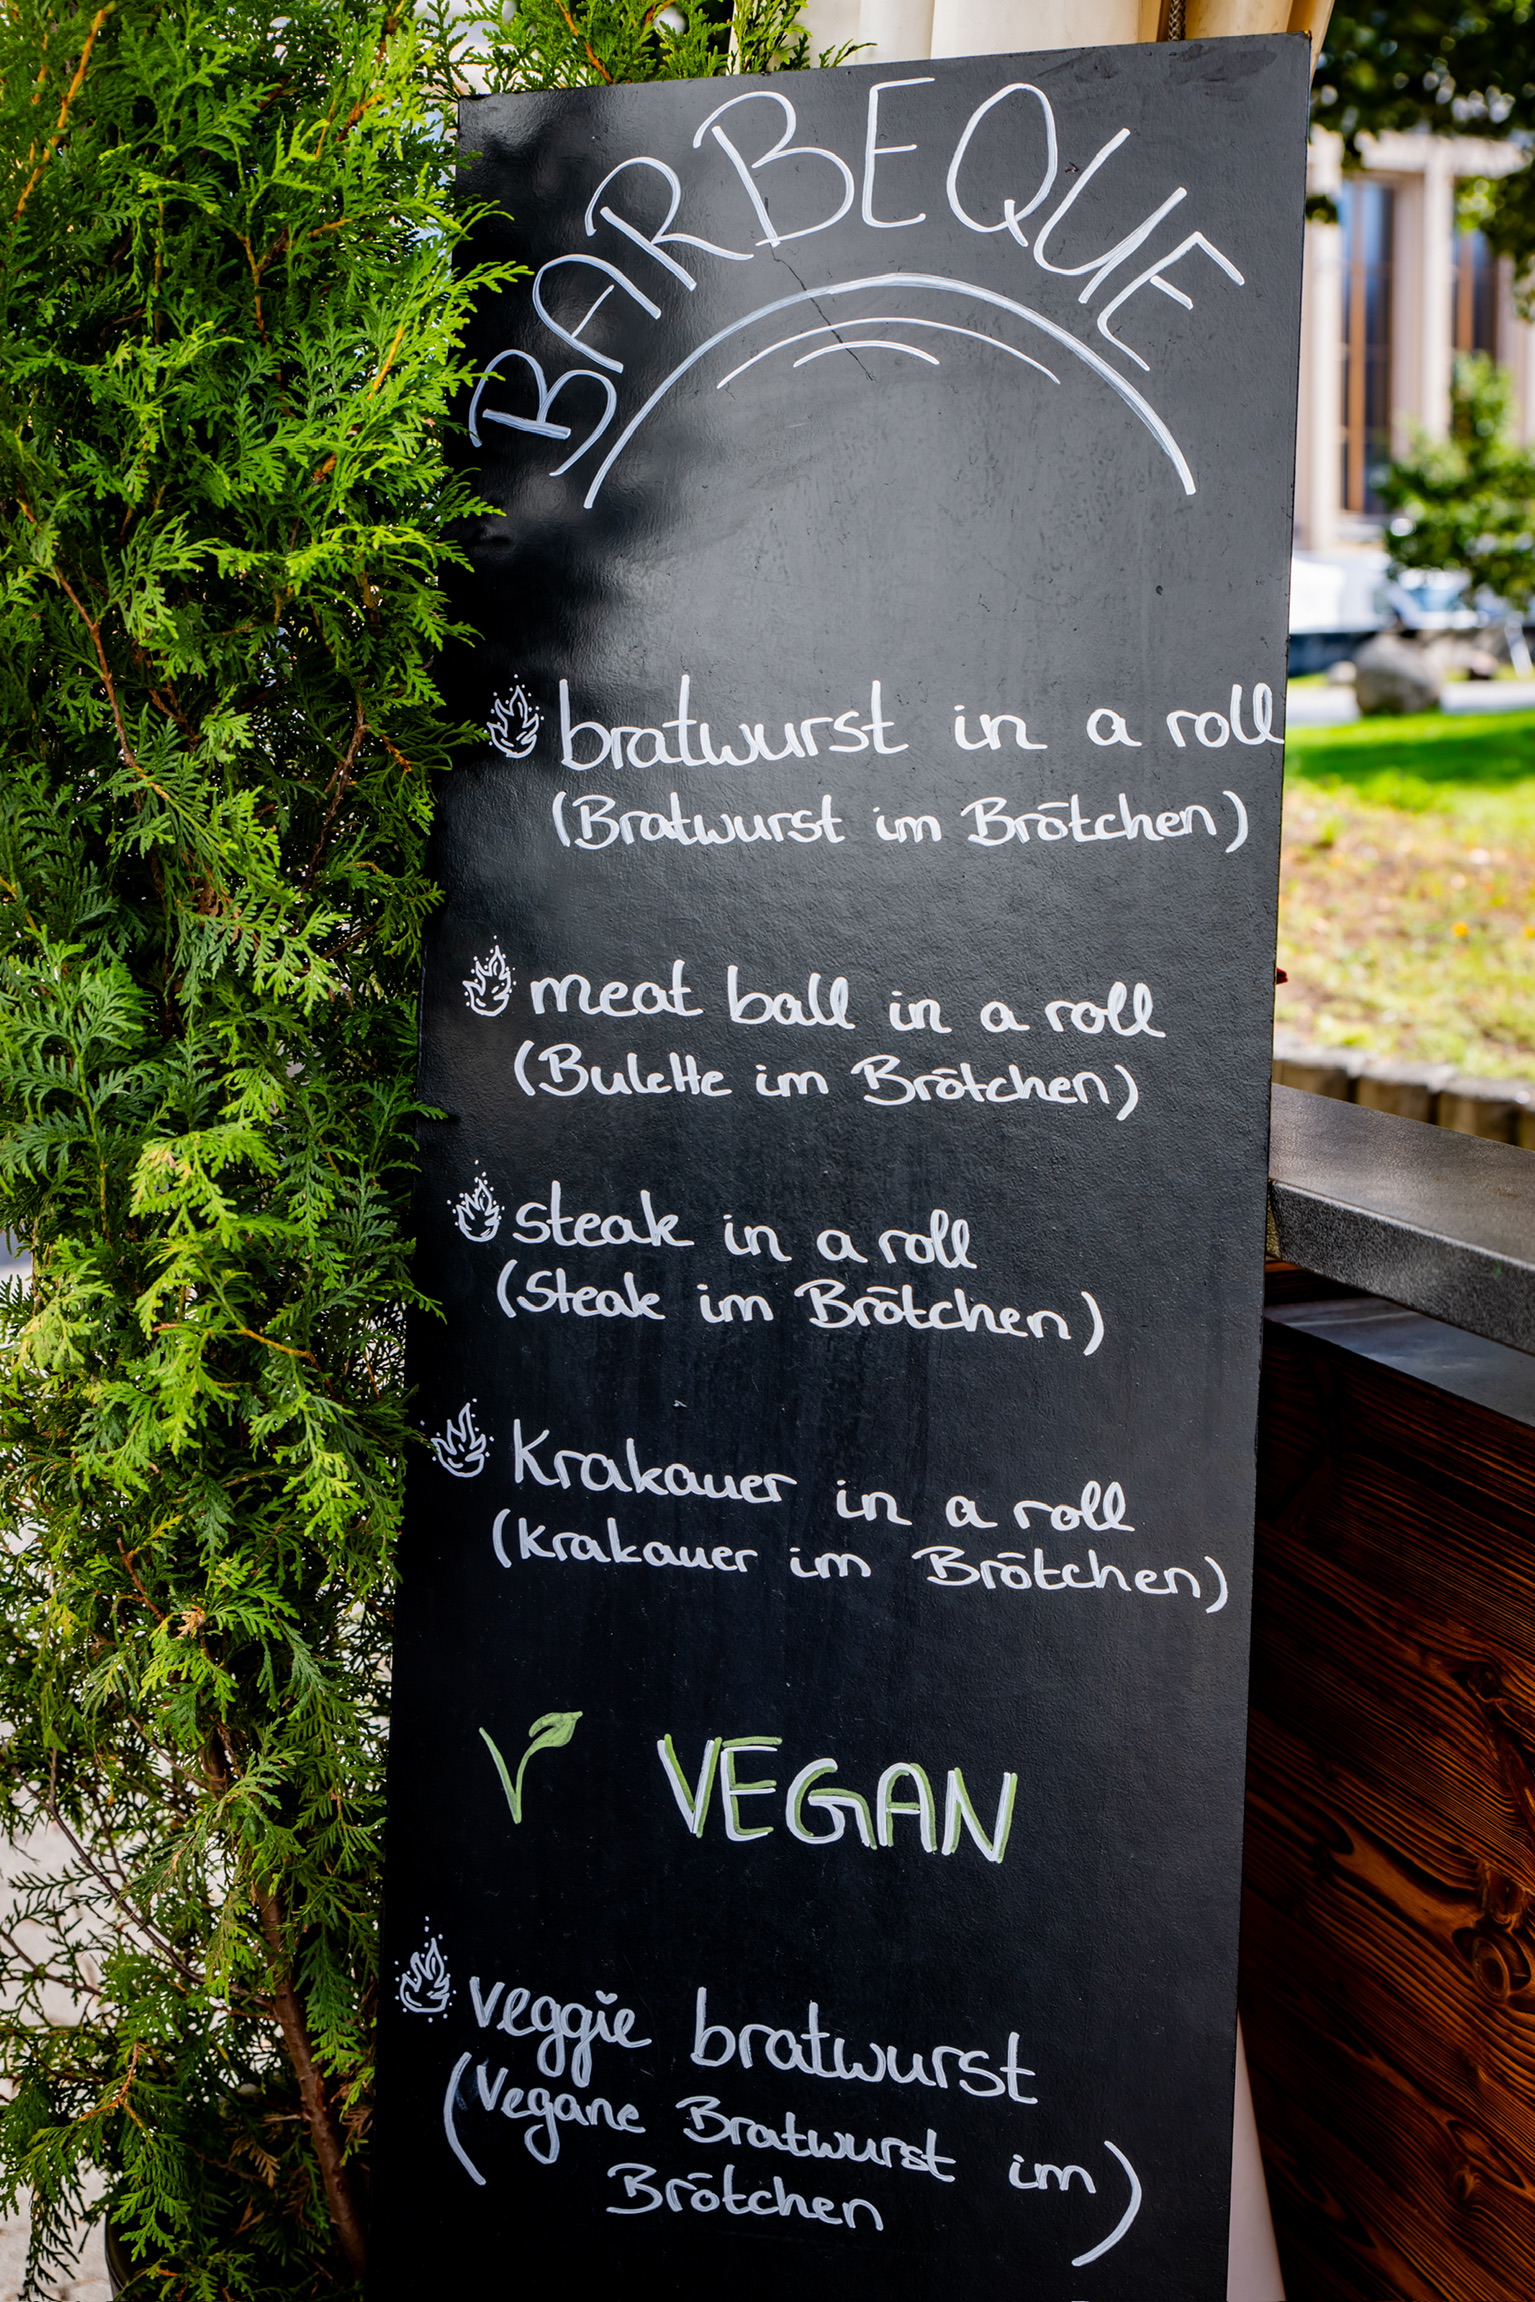 BARBEQUE
bratwurst in a roll
(Bratwurst im Brōtchen)
meat ball in a roll
(Bulette im Brōtchen)
steak in a roll
(Steak im Brōtchen)
Krakauer in a roll
(Krakauer im Brōtchen)
V VEGAN
veggie bratwurst
(Vegane Bratwurst im
Brōtchen)